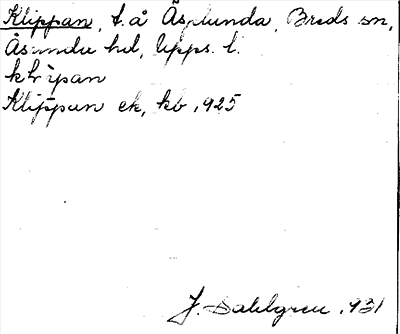 Klippan, t. å Äsplunda, Breds sn,
Åsunda hd, Upps. l.
klìpan
Klippan ek, kb 1925
J. Dahlgren 1931